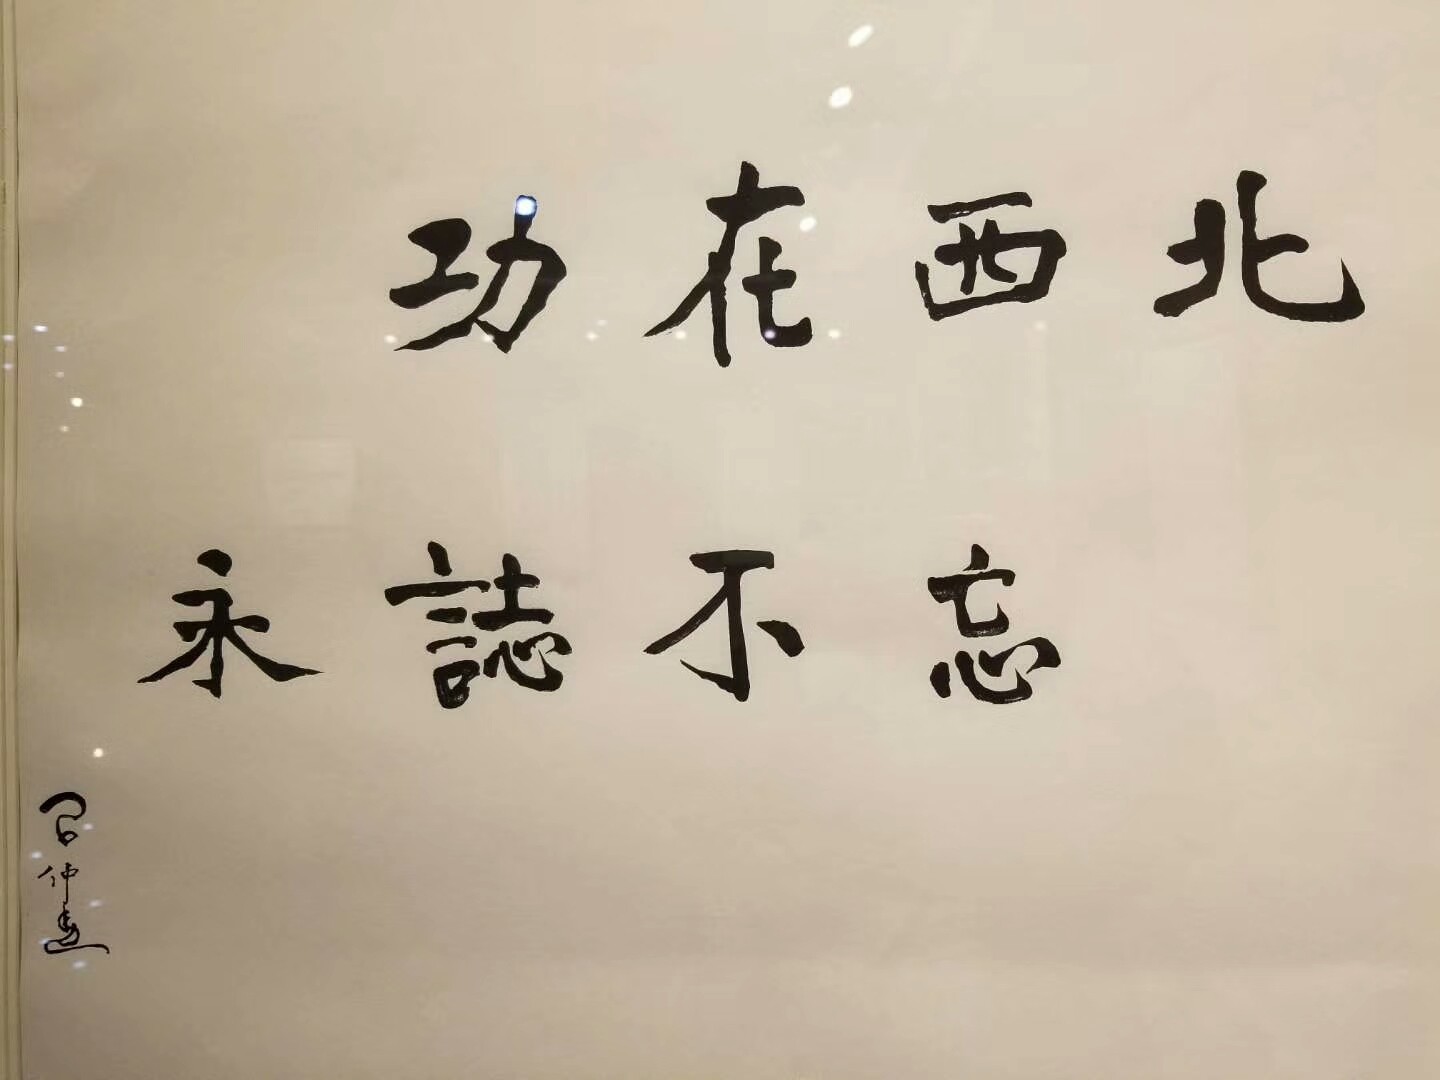 功在西北
永誌不忘
习仲勋